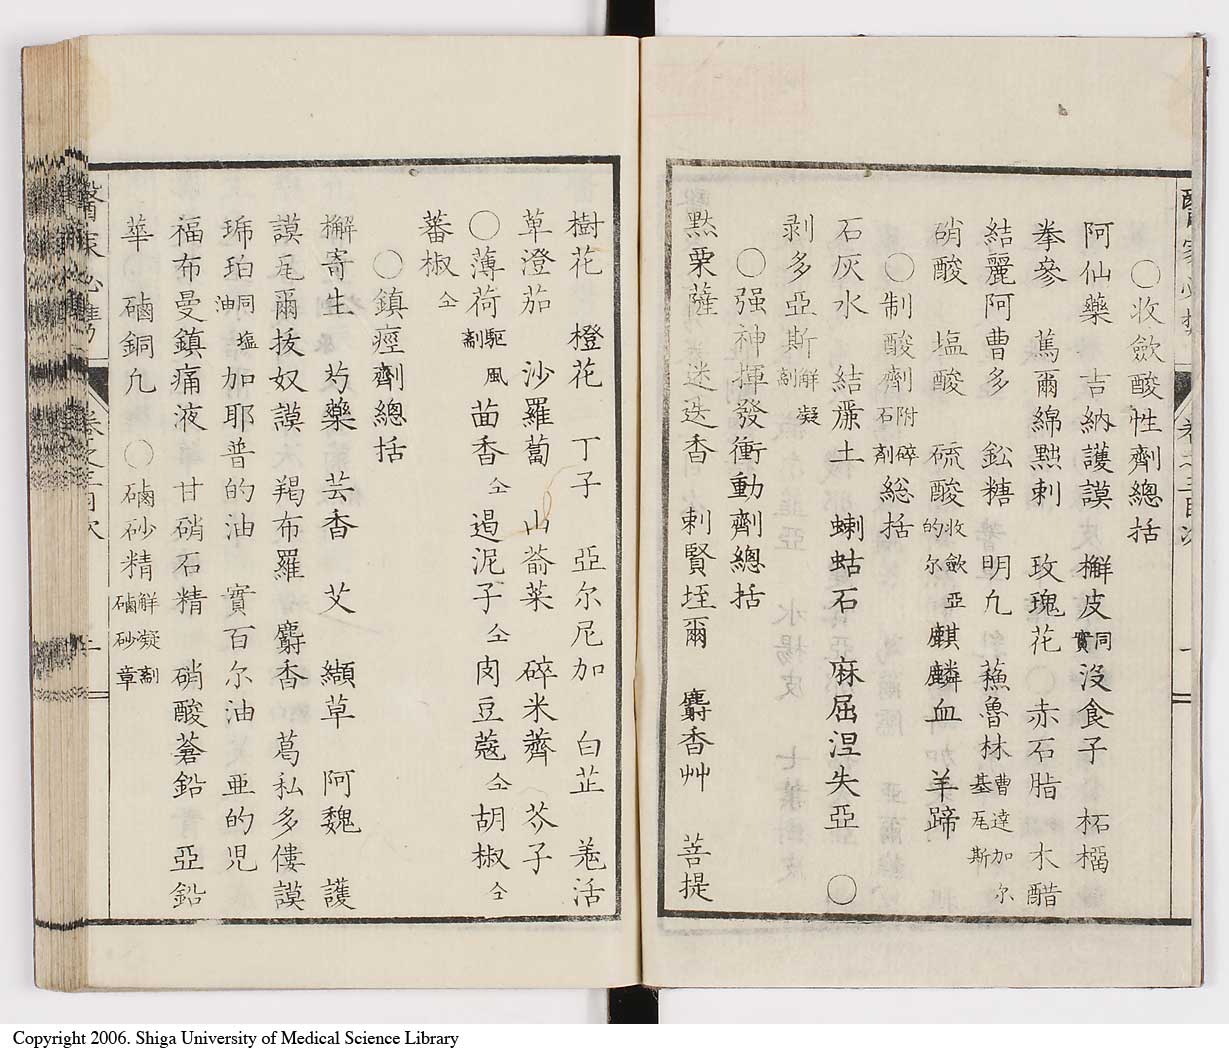 ○收斂酸性劑總括
阿仙藥 吉納護謨 檞皮同實 沒食子 柘榴
拳參 篤爾綿點剌 玫瑰花 ○赤石脂 木醋
結麗阿曹多 鉛糖 明凢 蘓魯林曹達加爾基尾斯
硝酸 塩酸 硫酸收斂亞的尔 麒麟血 羊蹄
○制酸劑附碎石劑総括
石灰水 結麗土 蝲蛄石 麻屈涅失亞 ○
剥多亞斯解凝劑
○强神揮發衝動劑總括
㸃栗薩 迷迭香 剌賢垤爾 麝香艸 菩提
樹花 橙花 丁子 亞尔尼加 白芷 羗活
草澄茄 沙羅蔔 山葊菜 碎米薺 芥子
○薄荷驅風劑 茴香仝 遏泥子仝 肉豆蔻仝 胡椒仝
蕃椒仝
○鎮痙劑總括
檞寄生 芍藥 芸香 艾 纈草 阿魏 護
謨尾爾拔奴謨 羯布羅 麝香 葛私多僂謨
琋珀油同塩 加耶普的油 實百尔油 亜的児
福布曼鎮痛液 甘硝石精 硝酸蒼鉛 亞鉛
華 磠銅凢 ○磠砂精解凝劑磠砂章
Copyright 2006. Shiga University of Medical Science Library